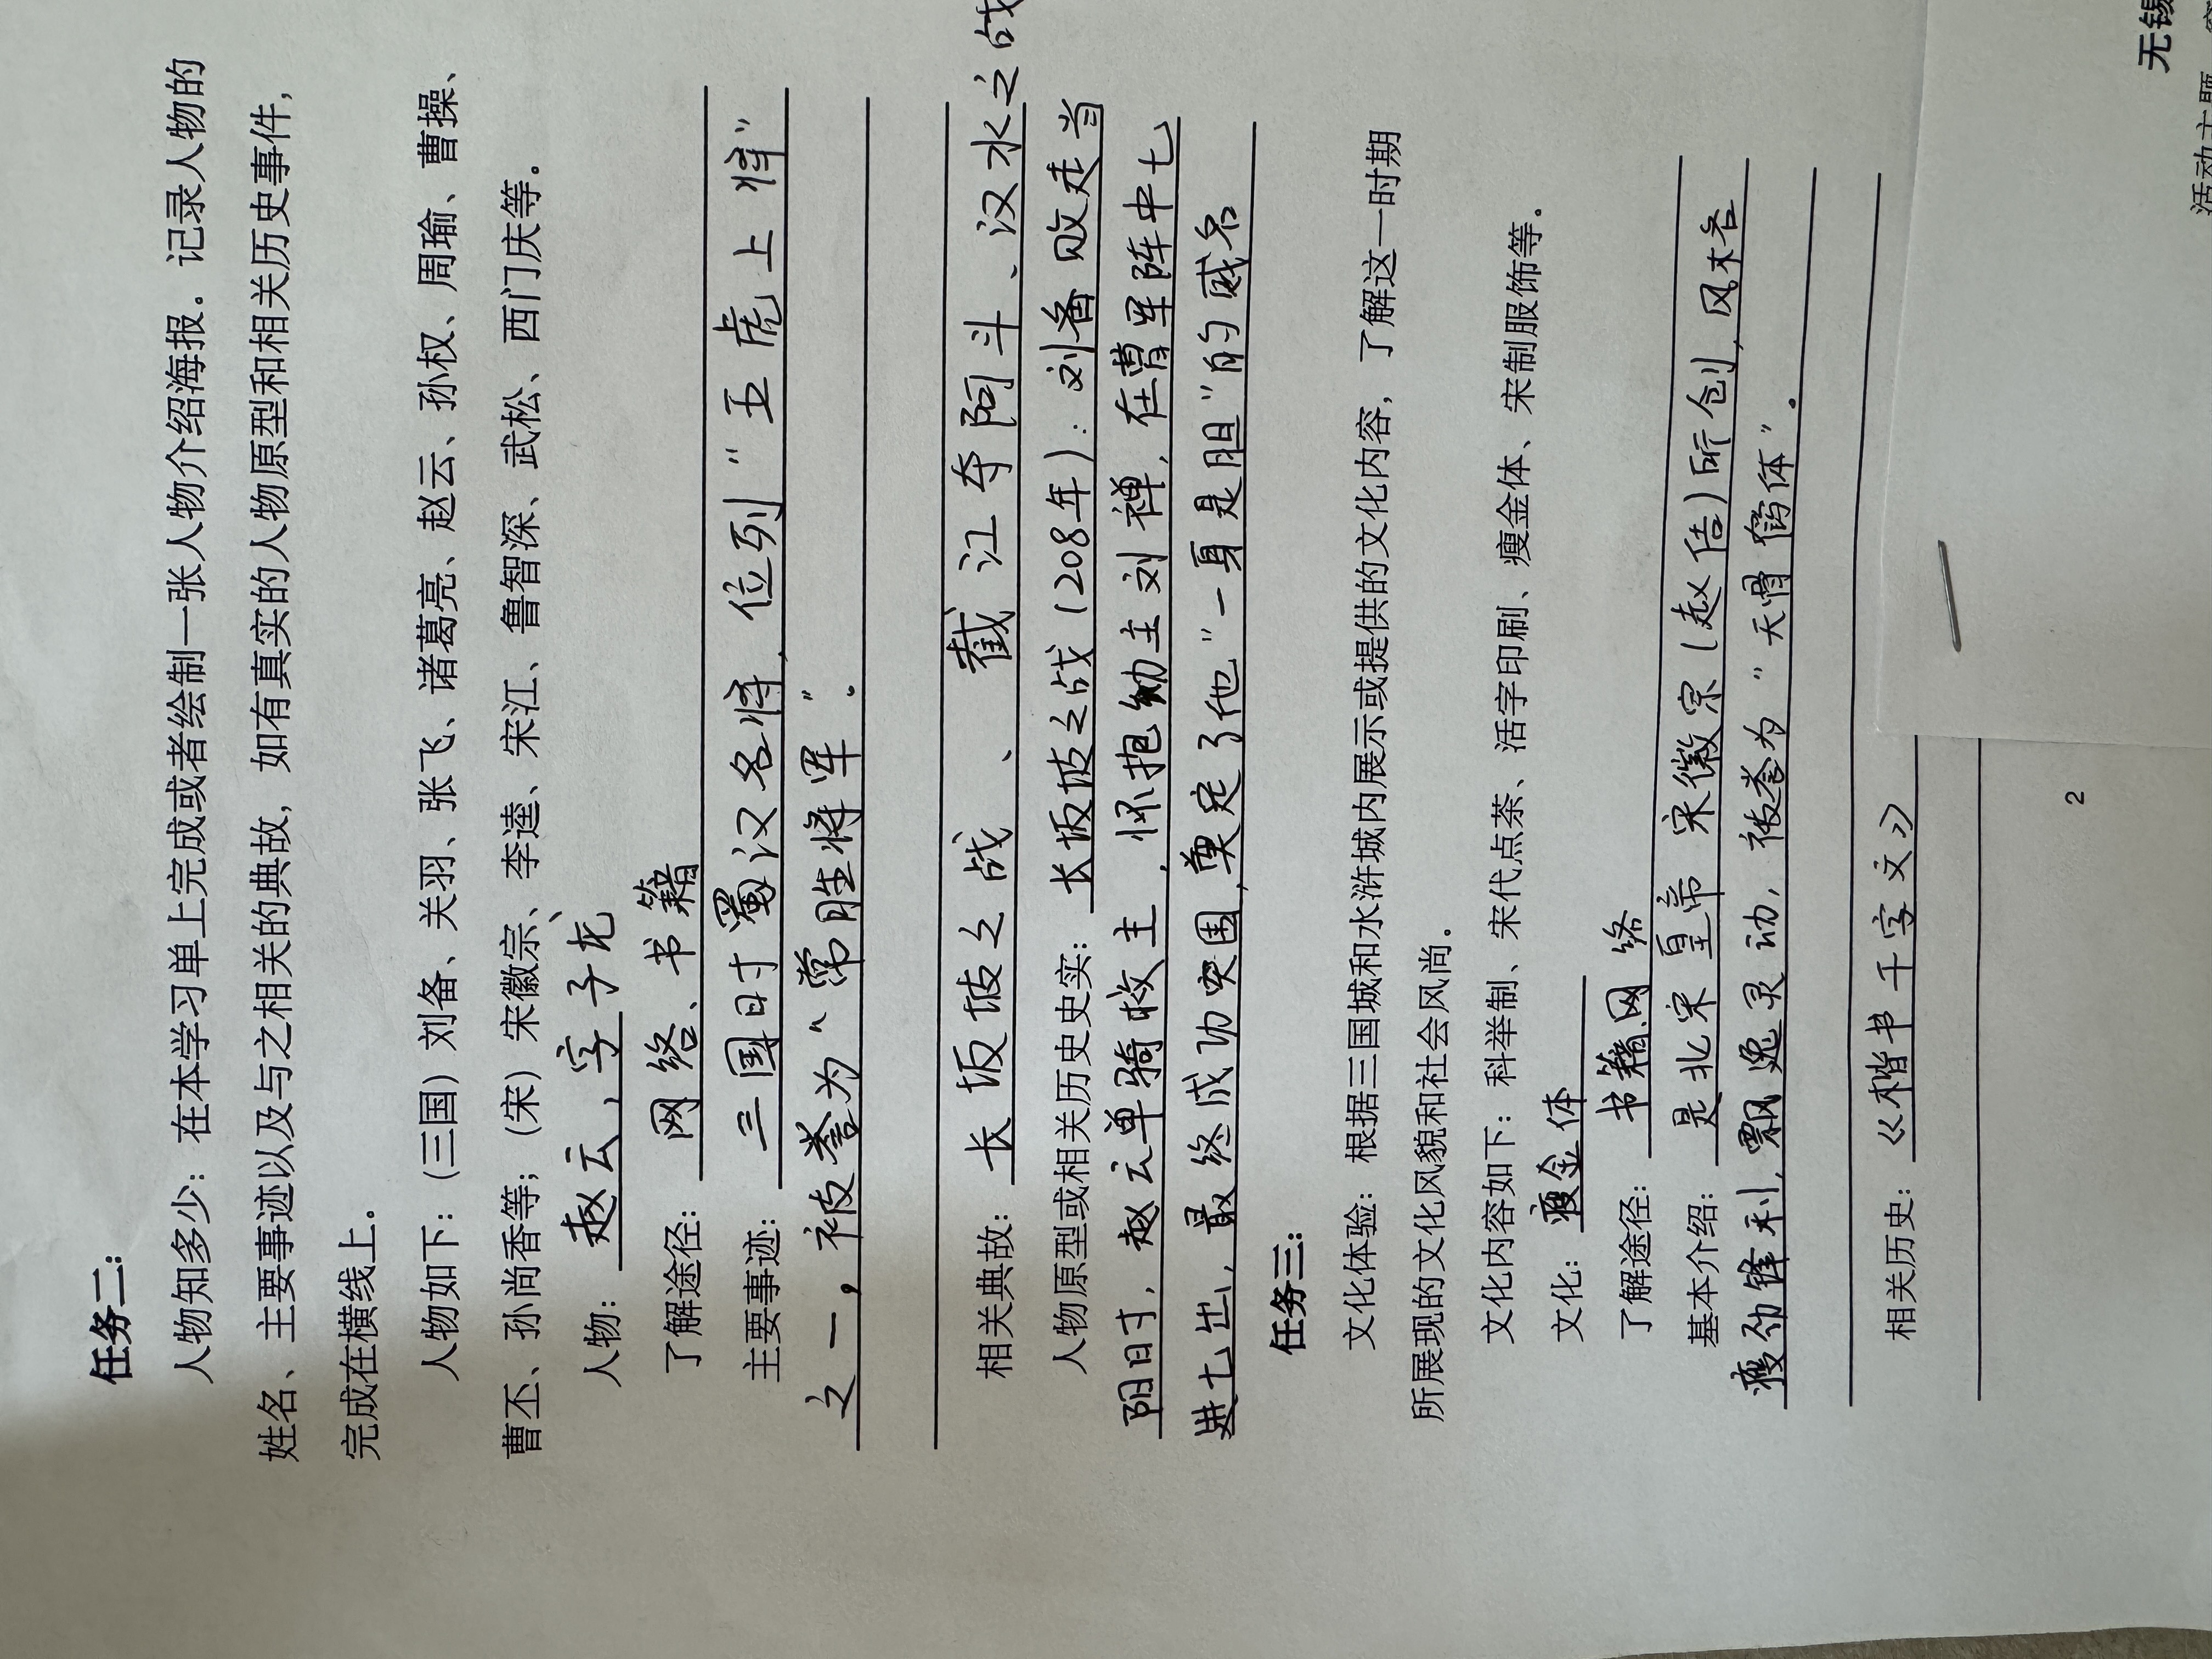 任务二：
人物知多少：在本学习单上完成或者绘制一张人物介绍海报。记录人物的
姓名、主要事迹以及与之相关的典故，如有真实的人物原型和相关历史事件，
完成在横线上。
人物如下：(三国) 刘备、关羽、张飞、诸葛亮、赵云、孙权、周瑜、曹操、
曹丕、孙尚香等；(宋) 宋徽宗、李逵、宋江、鲁智深、武松、西门庆等。
人物：赵云，字子龙
了解途径：网络、书籍
主要事迹：三国时蜀汉名将，位列"五虎上将"
之一，被誉为"常胜将军"。
相关典故：长坂坡之战、截江夺阿斗、汉水之战
人物原型或相关历史史实：长坂坡之战(208年)：刘备败走当
阳时，赵云单骑救主，怀抱幼主刘禅，在曹军阵中七
进七出，最终成功突围，奠定了他"一身是胆"的威名
任务三：
文化体验：根据三国城和水浒城内展示或提供的文化内容，了解这一时期
所展现的文化风貌和社会风尚。
文化内容如下：科举制、宋代点茶、活字印刷、瘦金体、宋制服饰等。
文化：瘦金体
了解途径：书籍、网络
基本介绍：是北宋皇帝宋徽宗(赵佶)所创，风格
瘦劲锋利，飘逸灵动，被誉为"天骨鹤体"。
相关历史：《楷书千字文》
2
无锡
活动主题